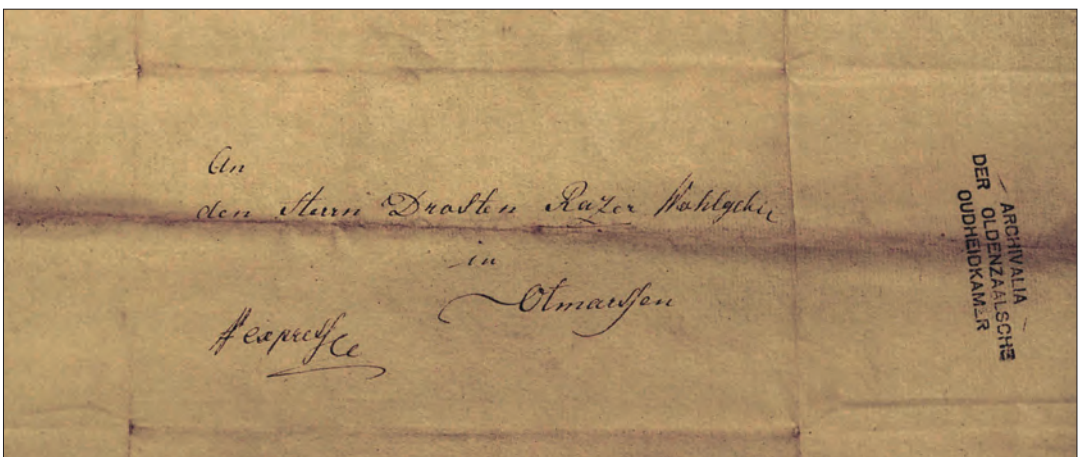 An
den Herrn Drosten Razer Wohlgeb
in
Otmarssen
expresse
ARCHIVALIA
DER OLDENZAALSCHE
OUDHEIDKAMER